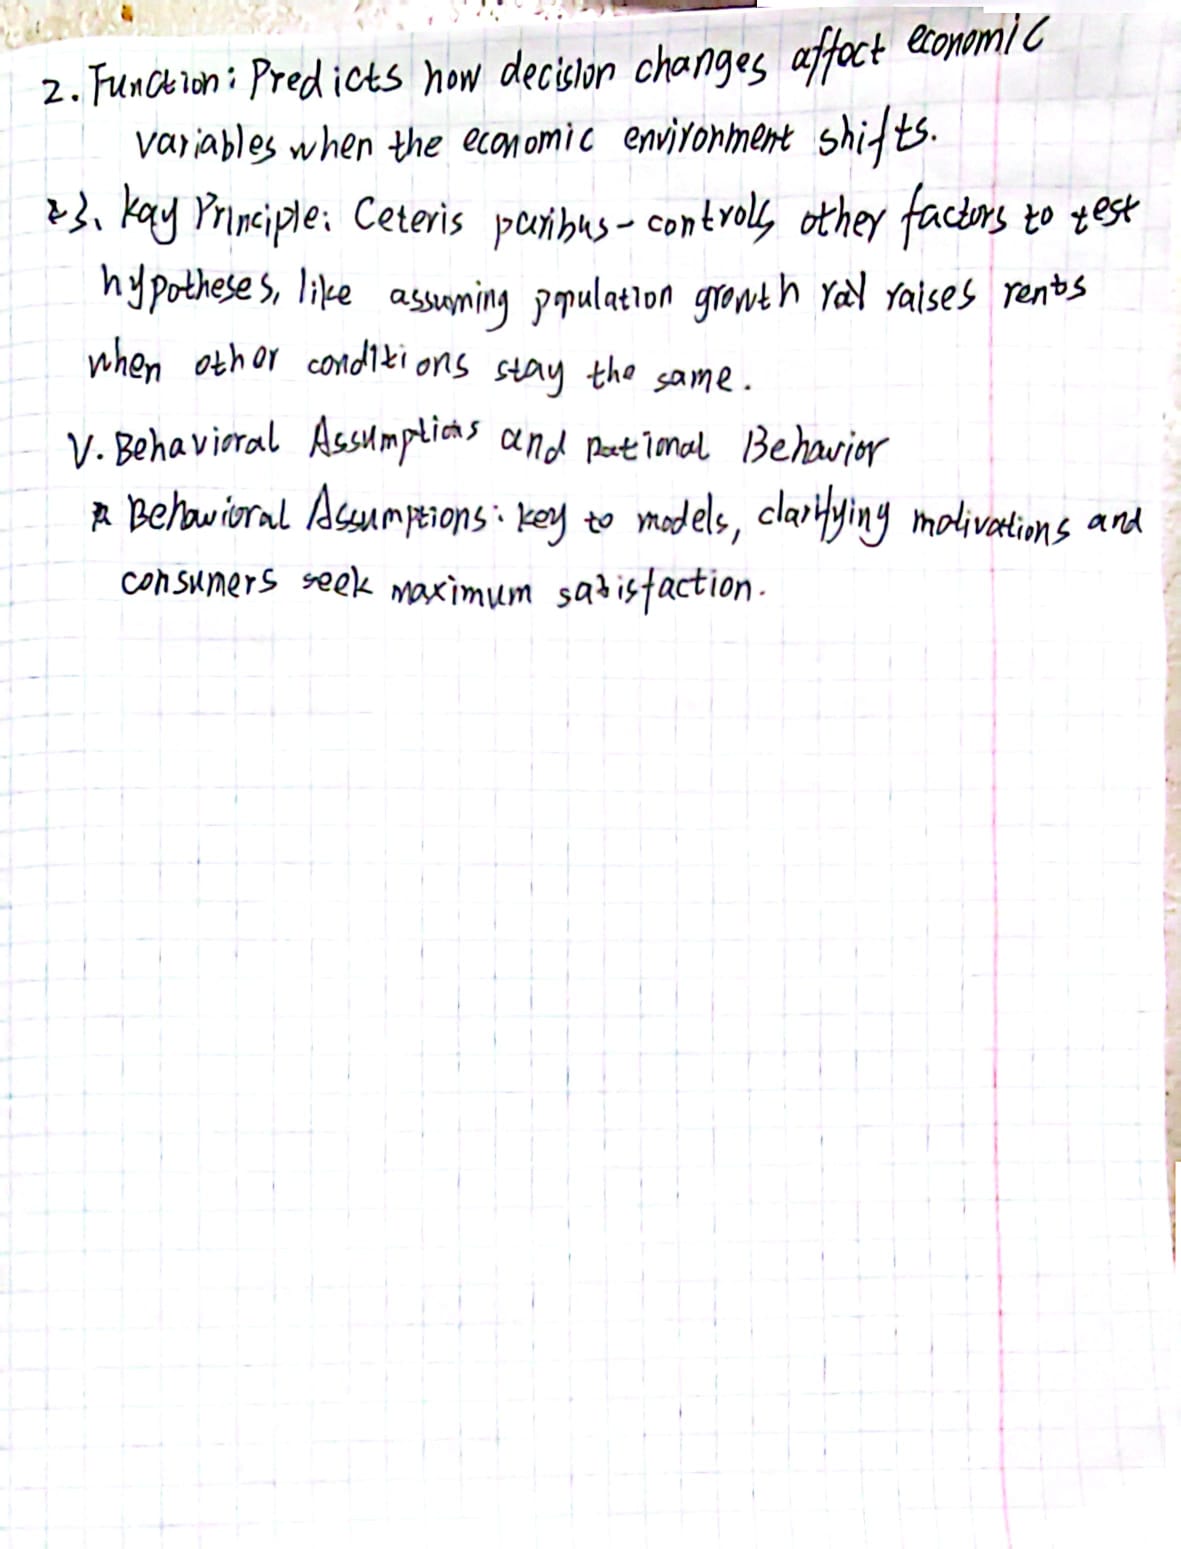 2. Function: Predicts how decision changes affect economic
variables when the economic environment shifts.
3. Key Principle: Ceteris paribus - controls other factors to test
hypotheses, like assuming population growth raises rents
when other conditions stay the same.
V. Behavioral Assumptions and Rational Behavior
Behavioral Assumptions: key to models, clarifying motivations and
consumers seek maximum satisfaction.